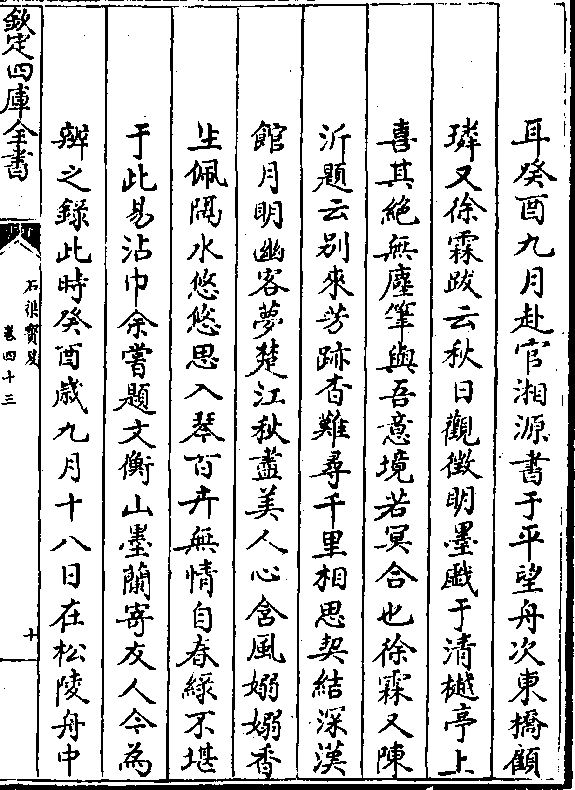 耳癸酉九月赴官湘源書于平望舟次東橋顧
璘又徐霖跋云秋日觀徵明墨戲于清樾亭上
喜其絶無塵筆與吾意境若冥合也徐霖又陳
沂題云别來芳跡杳難尋千里相思契結深漢
館月明幽客夢楚江秋盡美人心含風嫋嫋香
生佩隔水悠悠思入琴百卉無情自春緑不堪
于此易沾巾余嘗題文衡山墨蘭寄友人今為
辨之録此時癸酉歳九月十八日在松陵舟中
欽定四庫全書
石渠寳笈
卷四十三
十